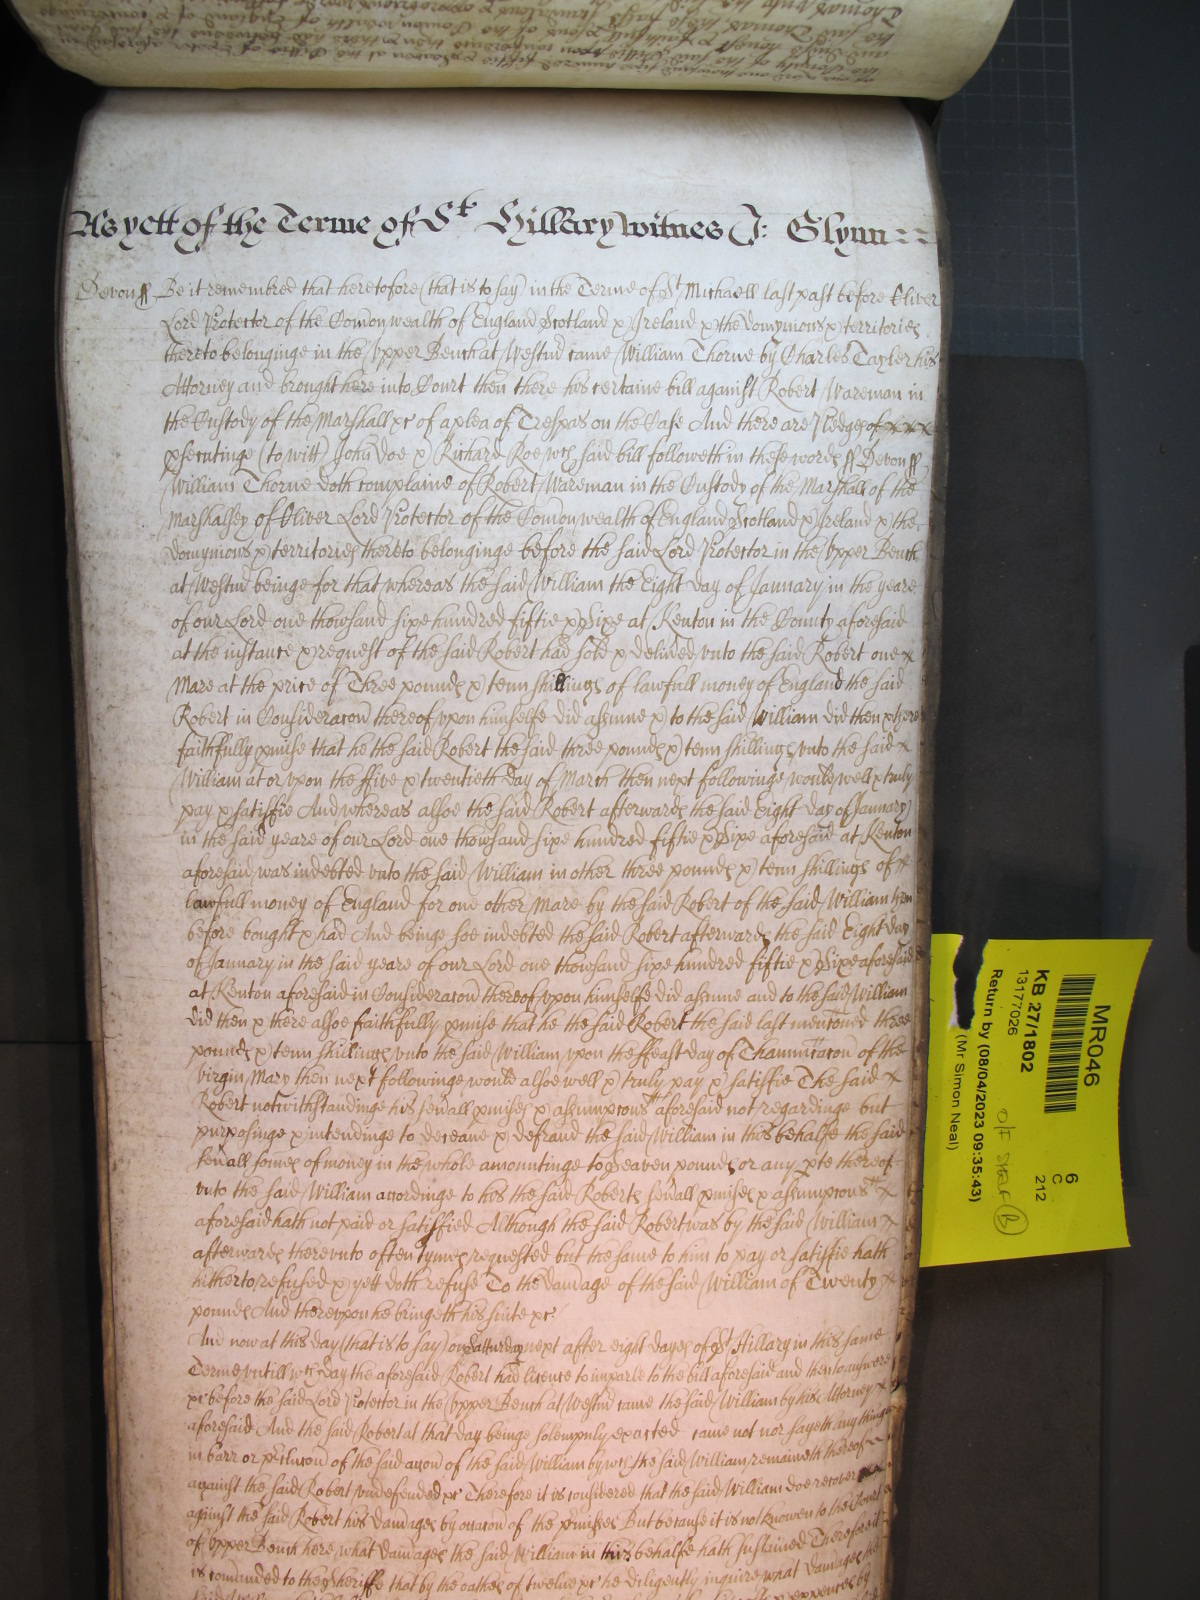 As yett of the Terme of St Hillary witnes J: Glynn
Devon ss Be it remembred that heretofore (that is to say) in the Terme of St Michaell last past before Oliver
Lord Protector of the Comonwealth of England Scotland & Ireland & the domynions & territories
thereto belonginge in the Upper Bench at Westmr came William Thorne by Charles Tayler his
Attorney and brought here into Court then there his certaine bill against Robert Wareman in
the Custody of the Marshall &c of a plea of Trespas on the Case And there are Pledges of
psecutinge (to witt) John Doe & Richard Roe wch said bill followeth in these words ss Devon ss
William Thorne doth complaine of Robert Wareman in the Custody of the Marshall of the
Marshalsey of Oliver Lord Protector of the Comonwealth of England Scotland & Ireland & the
domynions & territories thereto belonginge before the said Lord Protector in the Upper Bench
at Westmr beinge for that whereas the said William the Eight day of January in the yeare
of our Lord one thowsand sixe hundred fiftie & Sixe at Kenton in the County aforesaid
at the instance & request of the said Robert had sold & delivred vnto the said Robert one
Mare at the price of Three pounds & tenn shillings of lawfull money of England the said
Robert in Consideracon thereof vpon himselfe did assume & to the said William did then & there
faithfully pmise that he the said Robert the said three pounds & tenn shillings vnto the said
William at or vpon the ffive & twentieth day of March then next followinge would well & truly
pay & satisfie And whereas alsoe the said Robert afterwards the said Eight day of January
in the said yeare of our Lord one thowsand sixe hundred fiftie & Sixe aforesaid at Kenton
aforesaid was indebted vnto the said William in other three pounds & tenn shillings of
lawfull money of England for one other Mare by the said Robert of the said William then
before bought & had And beinge soe indebted the said Robert afterwards the said Eight day
of January in the said yeare of our Lord one thowsand sixe hundred fiftie & Sixe aforesaid
at Kenton aforesaid in Consideracon thereof vpon himselfe did assume and to the said William
did then & there alsoe faithfully pmise that he the said Robert the said last menconed three
pounds & tenn shillings vnto the said William vpon the ffeast day of Thannuncacon of the
virgin Mary then next followinge would alsoe well & truly pay & satisfie The said
Robert notwithstandinge his sevall pmises & assumpcons aforesaid not regardinge but
purposinge & intendinge to deceave & defraud the said William in this behalfe the said
sevall somes of money in the whole amountinge to Seaven pounds or any pte thereof
vnto the said William accordinge to his the said Roberts sevall pmises & assumpcons
aforesaid hath not paid or satisfied Although the said Robert was by the said William
afterwards therevnto often tymes requested but the same to him to pay or satisfie hath
hitherto refused & yett doth refuse To the damage of the said William of Twenty
pounds And therevpon he bringeth his suite &c
And now at this day (that is to say) on Satturday next after eight dayes of St Hillary in this same
Terme vntill wch day the aforesaid Robert had licence to imparle to the bill aforesaid and then to answere
&c before the said Lord Protector in the Upper Bench at Westmr came the said William by his Attorney
aforesaid And the said Robert at that day beinge solempnly exacted came not nor sayeth any thinge
in barr or pclusion of the said accon of the said William by wch the said William remaineth thereof
against the said Robert vndefended &c Therefore it is considered that the said William doe recover
against the said Robert his damages by occacon of the pmisses But because it is not knowen to the Court
of Upper Bench here what damages the said William in this behalfe hath sustained Therefore it
is comanded to the Sheriffe that by the oathes of twelve &c he diligently inquire what damages the
MR046
6
C
212
KB 27/1802
13177026
Return by (08/04/2023 09:35:43)
(Mr Simon Neal)
O/F
B